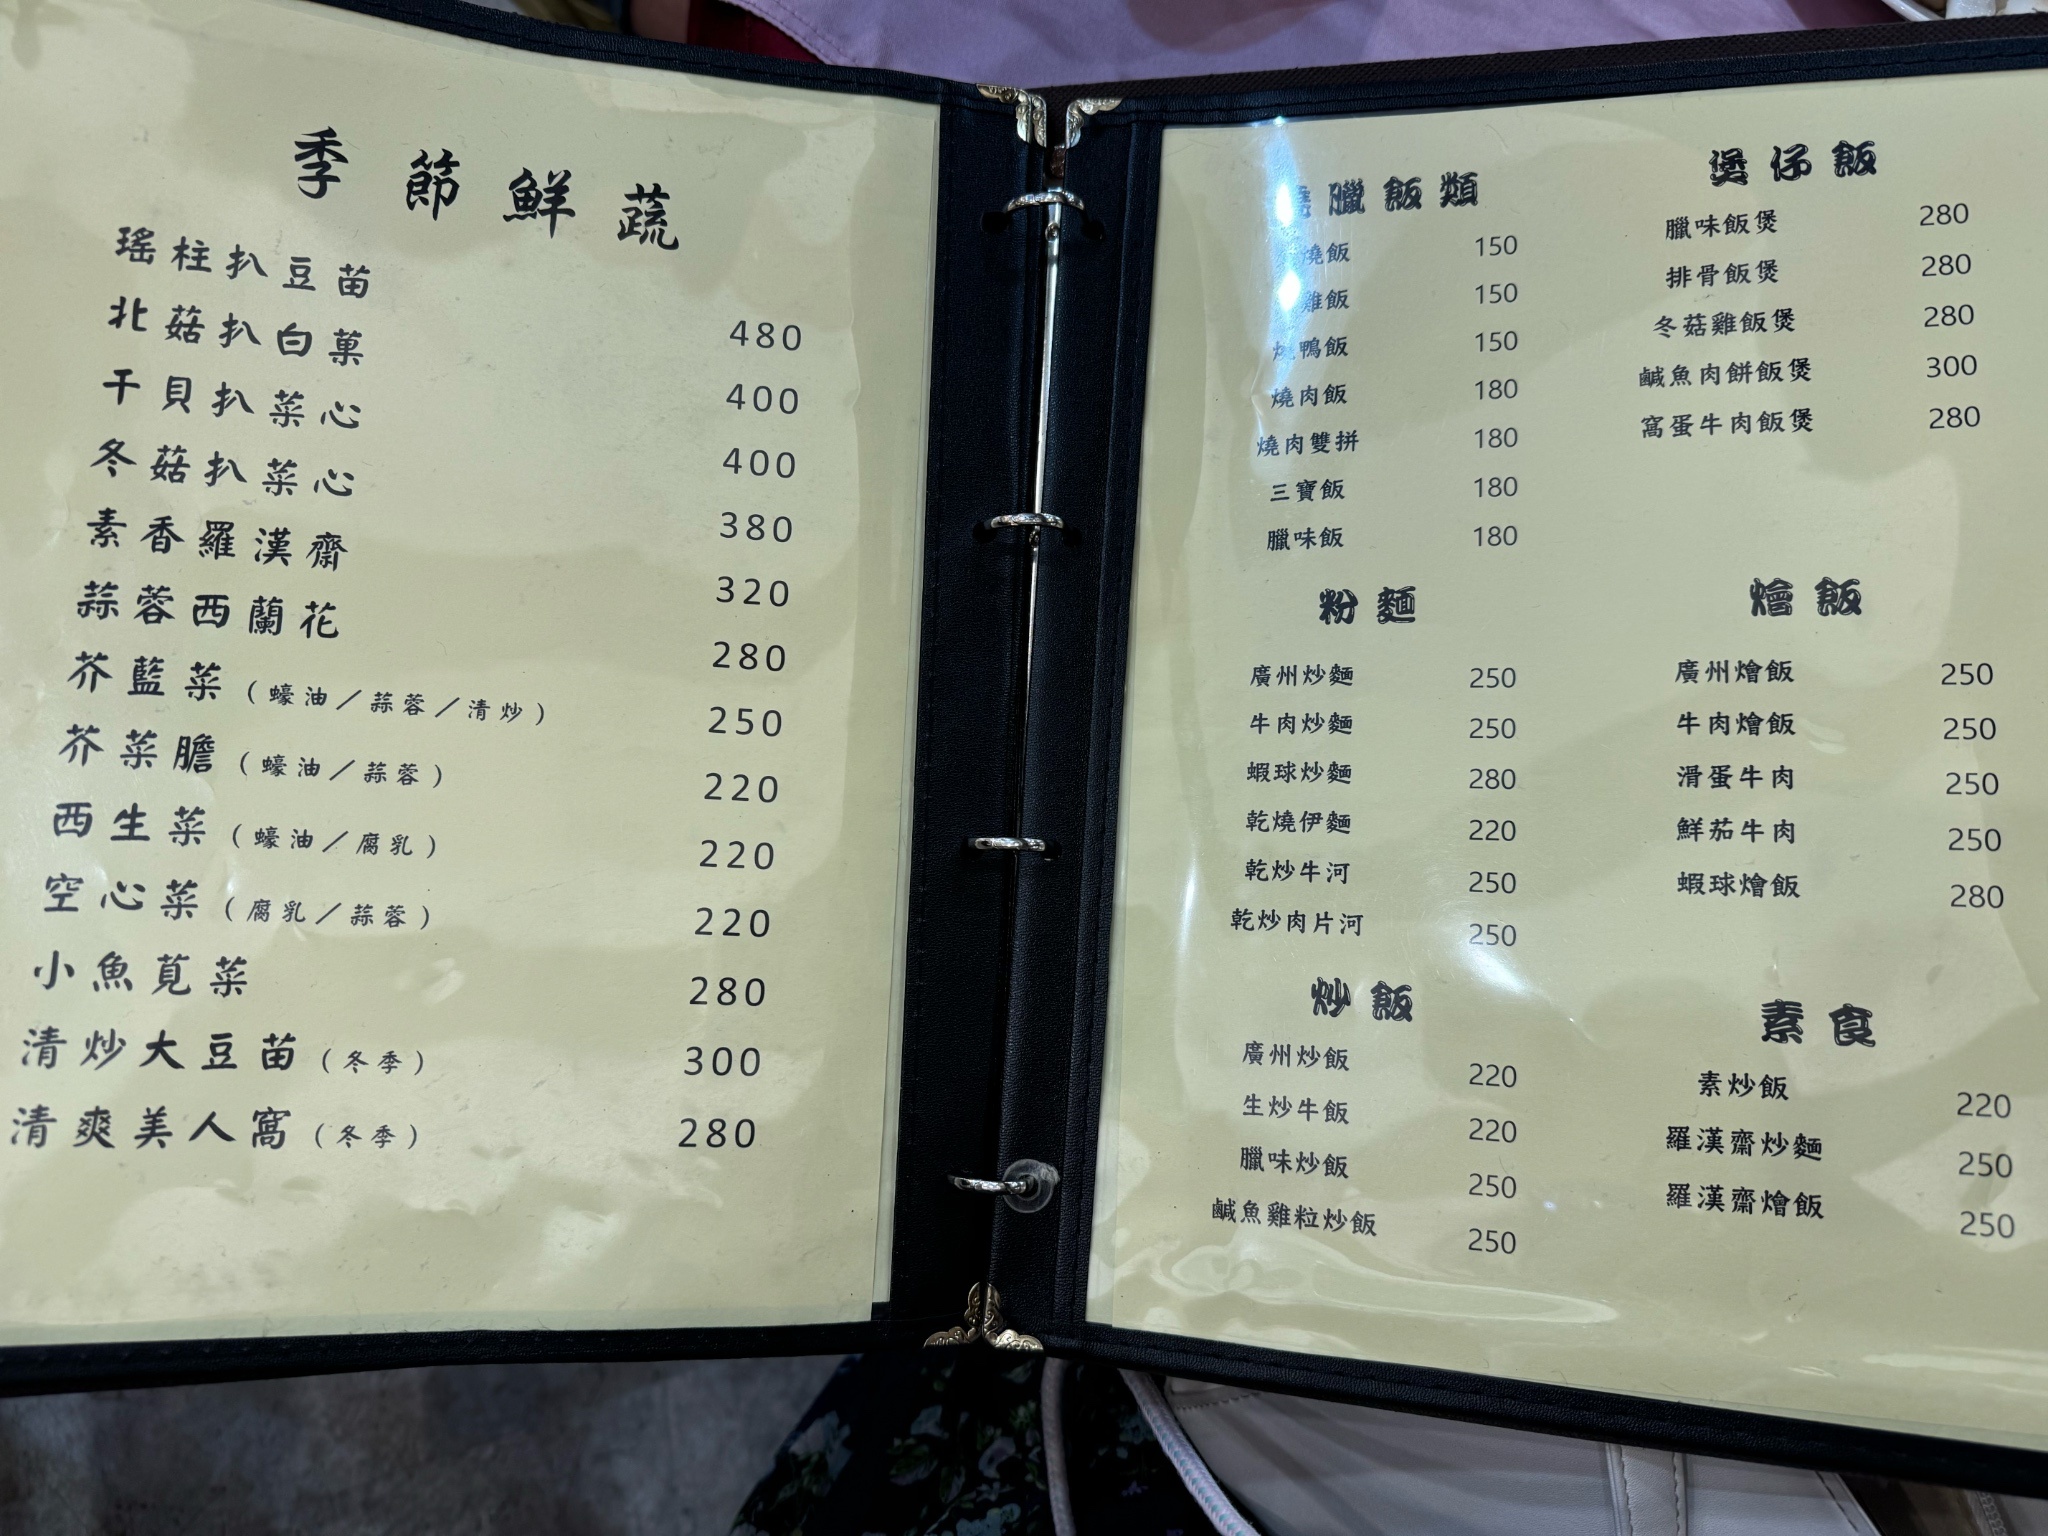 季節鮮蔬
瑤柱扒豆苗 480
北菇扒白菓 400
干貝扒菜心 400
冬菇扒菜心 380
素香羅漢齋 320
蒜蓉西蘭花 280
芥藍菜（蠔油／蒜蓉／清炒） 250
芥菜膽（蠔油／蒜蓉） 220
西生菜（蠔油／腐乳） 220
空心菜（腐乳／蒜蓉） 220
小魚莧菜 280
清炒大豆苗（冬季） 300
清爽美人窩（冬季） 280
臘飯類
燒飯 150
雞飯 150
燒鴨飯 150
燒肉飯 180
燒肉雙拼 180
三寶飯 180
臘味飯 180
粉麵
廣州炒麵 250
牛肉炒麵 250
蝦球炒麵 280
乾燒伊麵 220
乾炒牛河 250
乾炒肉片河 250
炒飯
廣州炒飯 220
生炒牛飯 220
臘味炒飯 250
鹹魚雞粒炒飯 250
煲仔飯
臘味飯煲 280
排骨飯煲 280
冬菇雞飯煲 280
鹹魚肉餅飯煲 300
窩蛋牛肉飯煲 280
燴飯
廣州燴飯 250
牛肉燴飯 250
滑蛋牛肉 250
鮮茄牛肉 250
蝦球燴飯 280
素食
素炒飯 220
羅漢齋炒麵 250
羅漢齋燴飯 250